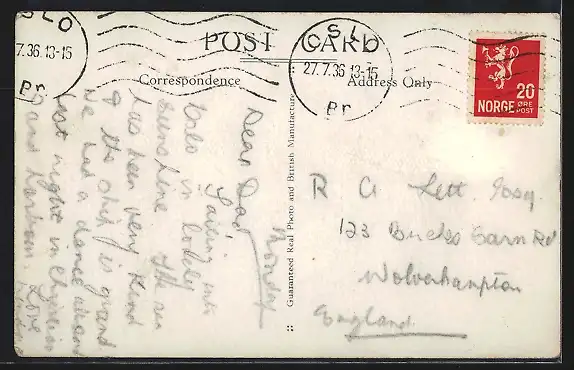 POST CARD
Correspondence
Address Only
SLO
7.36.13-15
Pr
OSLO
27.7.36 13-15
Pr
20
NORGE ØRE
POST
Guaranteed Real Photo and British Manufacture
Monday
Dear Dad
Sailing into
Oslo in lovely
sunshine
has been very kind
& the ship is grand
We had a dance
last night in
Love
R A Lett Esq.
123 Rd
Wolverhampton
England